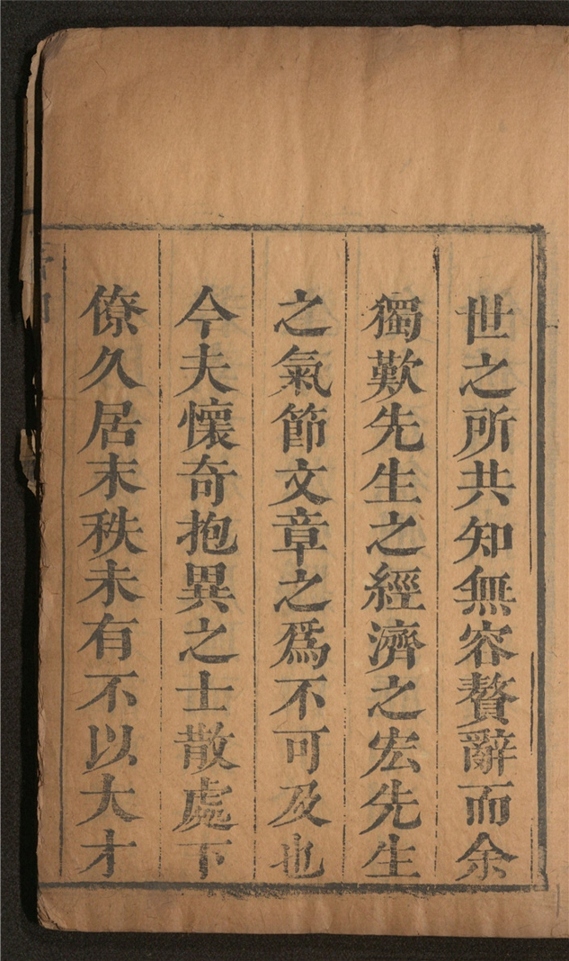 世之所共知無容贅辭而余
獨歎先生之經濟之宏先生
之氣節文章之爲不可及也
今夫懷奇抱異之士散處下
僚久居末秩未有不以大才